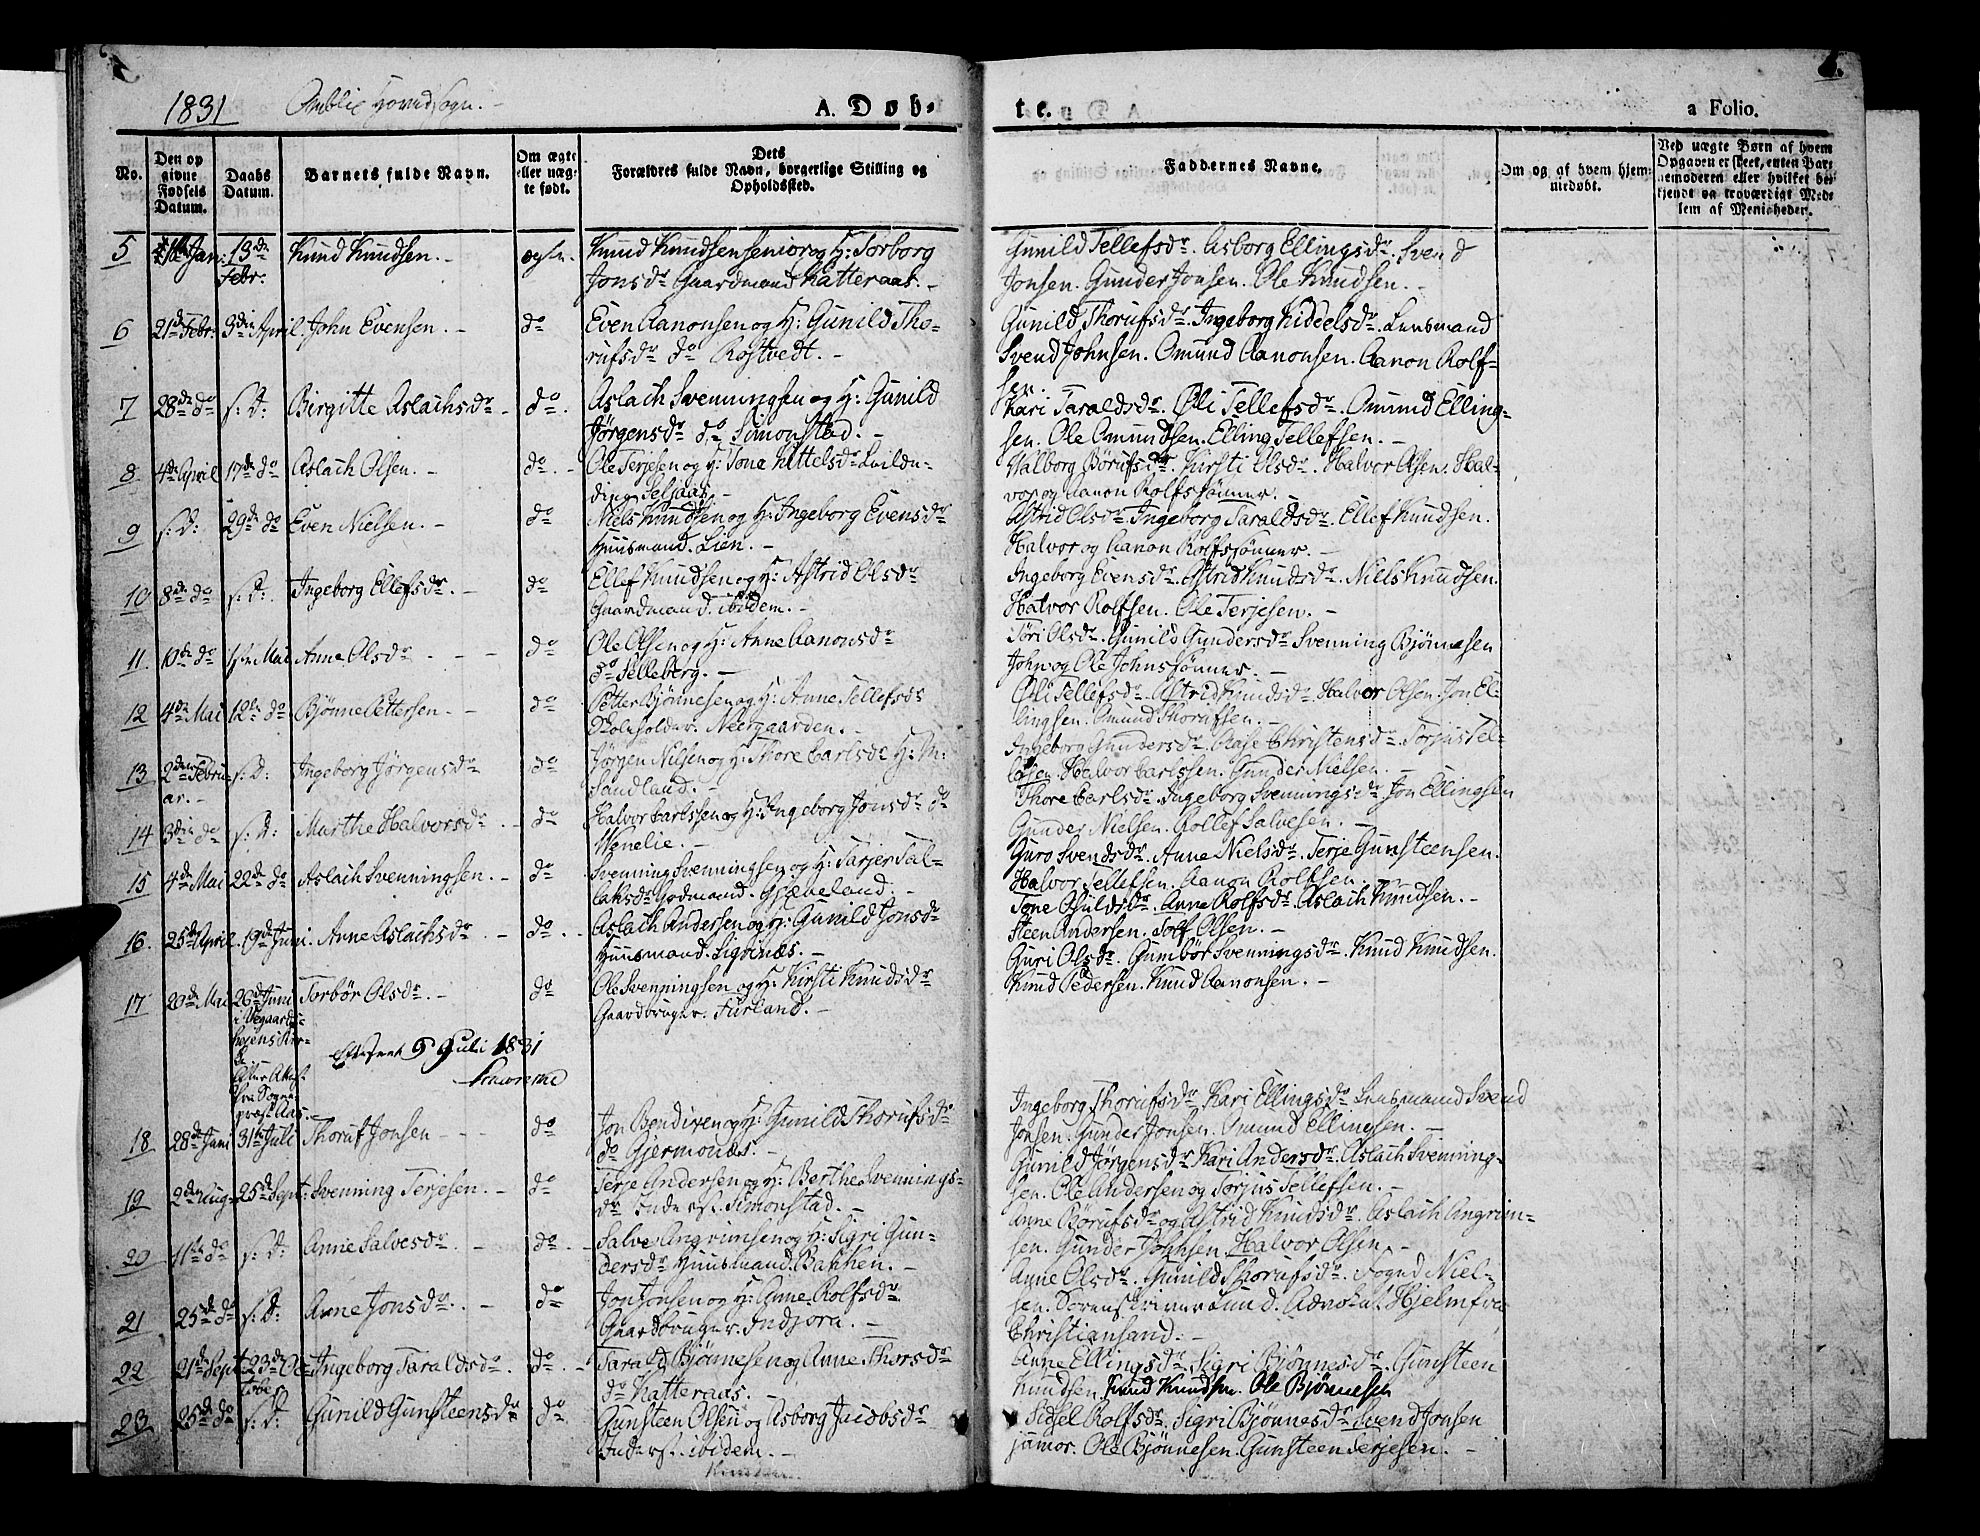 1831 Omblie Hovedsogn.
A. Døb-
te.
a Folio.
No.
Den opgivne Fødsels Datum.
Daabs Datum.
Barnets fulde Navn.
Om ægte eller uægte født.
Dets Forældres fulde Navn, borgerlige Stilling og Opholdssted.
Faddernes Navne.
Om og af hvem hjemmedøbt.
Ved uægte Børn af hvem Opgaven er skeet, enten Barnemoderen eller hvilket bekjendt og troværdigt Medlem af Menigheden.
5 Jan: 13de Febr. Knud Knudsen. ægte. Knud Knudsen senior og H: Torborg
Jonsdr Gaardmand Hatteraas.
Gunild Tellefsdr. Asborg Ellingsdr. Svend
Jonsen. Gunder Jonsen. Ole Knudsen.
6 21de Febr: 3die April. John Evensen. do Even Aanonsen og H: Gunild Tho-
rufsdr do Rostvedt.
Gunild Thorufsdr. Ingeborg Kiddelsdr. Lensmand
Svend Johnsen. Omund Aanonsen. Aanon Rolf-
sen.
7 28de do s: D: Birgitte Aslachsdr do. Aslach Svenningsen og H: Gunild
Jørgensdr do Simonstad.
Kari Taraldsdr. Øli Tellefsdr. Omund Elling-
sen. Ole Omundsen. Elling Tellefsen.
8 4de April 17de do Aslach Olsen. do. Ole Terjesen og H: Tone Kittelsdr
Seljaas.
Valborg Børufsdr. Kirsti Olsdr. Halvor Olsen. Hal-
vor og Aanon Rolfssønner.
9 s: D: 29de do Even Nielsen. do Niels Knudsen og H: Ingeborg Evensdr
Huusmand. Lien.
Astrid Olsdr Ingeborg Taraldsdr. Ellef Knudsen.
Halvor og Aanon Rolfssønner.
10 8de do s: D: Ingeborg Ellefsdr. do Ellef Knudsen og H: Astrid Olsdr
Gaardmand. ibidem.
Ingeborg Evensdr. Astrid Knudsdr. Niels Knudsen.
Halvor Rolfsen. Ole Terjesen.
11. 10de do Mai Anne Olsdr. do Ole Olsen og H: Anne Aanonsdr
do Selleberg.
Tøri Olsdr. Gunild Gundersdr Svenning Bjørnesen
John og Ole Johnssønner.
12 4de Mai 12te do Bjønne Pettersen. do Petter Bjønnesen og H: Anne Tellefsdr
Neergaarden.
Øli Tellefsdr. Astrid Knudsdr Halvor Olsen. Jon El-
lingsen. Omund Thorufsen.
13 2den Febru-
ar. s: D: Ingeborg Jørgensdr do Jørgen Nilsen og H: Thore Carlsdr H: M:
Sandland.
Ingeborg Gundersdr. Aase Christensdr. Torjus Tel-
lefsen. Halvor Carlssen. Gunder Nielsen.
14 3die do s: D: Marthe Halvorsdr. do Halvor Carlssen og H: Ingeborg Jonsdr do
Wenelie.
Thore Carlsdr. Ingeborg Svenningsdr Jon Ellingsen
Gunder Nielsen. Rollef Salvesen.
15 4de Mai 22de do Aslach Svenningsen. do Svenning Svenningsen og H: Tarjer Tal-
laksdr Godmand. Gjæveland.
Guro Svendsdr. Anne Nielsdr. Terje Gunsteensen.
Halvor Tellefsen. Aanon Rolfsen.
16. 25de April. 19de Juni. Anne Aslachsdr do. Aslach Andersen og H: Gunild Jonsdr
Huusmand. Sigrinæs.
Tone Oluldsdr. Anne Rolfsdr. Aslach Knudsen.
Steen Andersen. Tolf Olsen.
17 20de Mai 26de Juni Torbør Olsdr. do Ole Svenningsen og H: Kirsti Knudsdr
Gaardbruger. Furland.
Guri Olsdr. Gumbør Svenningsdr. Knud Knudsen.
Knud Pedersen. Knud Aanonsen.
i Vegaards-
heiens Kir-
ke
Attest
fra Sogne-
præst Aas.
Efterseet 9 Juli 1831
18 28de Juni 31te Juli Thoruf Jonsen do Jon Bendixen og H: Gunild Thorufsdr
do Gjermonæs.
Ingeborg Thorufsdr Kari Ellingsdr Lensmand Svend
Jonsen. Gunder Jonsen. Omund Ellingsen.
19 2den Aug. 25de Sept: Svenning Terjesen. do Terje Andersen og H: Berthe Svennings-
dr Inders. Simonstad.
Gunild Jørgensdr Kari Andersdr. Aslach Svenning-
sen. Ole Andersen og Torjus Tellefsen.
20 11te do s: D: Anne Salvesdr. do. Salve Angrimsen og H: Sigri Gun-
dersdr Huusmand. Bakken.
Anne Børufsdr og Astrid Knudsdr. Aslach Angrim-
sen. Gunder Johnsen. Halvor Olsen.
21 25de do s: D: Anne Jonsdr. do Jon Jonsen og H: Anne Rolfsdr
Gaardbruger. Indjora.
Anne Olsdr. Gunild Thorufsdr. Fogned Niel-
sen. Sorenskriver Lund. Advokat Hjelm fra
Christiansand.
22 21de Sept 23de Oc-
tober Ingeborg Taraldsdr. do. Tarald Bjønnesen og Anne Thorsdr
do Hatteraas.
Anne Ellingsdr. Sigri Bjønnesdr. Gunsteen
Knudsen. Knud Knudsen. Ole Bjønnesen
23 25de do s: D: Gunild Gunsteensdr do Gunsteen Olsen og Asborg Jacobsdr
Inders. ibidem.
Sidsel Rolfsdr. Sigri Bjønnesdr Svend Jonsen
junior. Ole Bjønnesen. Gunsteen Terjesen.